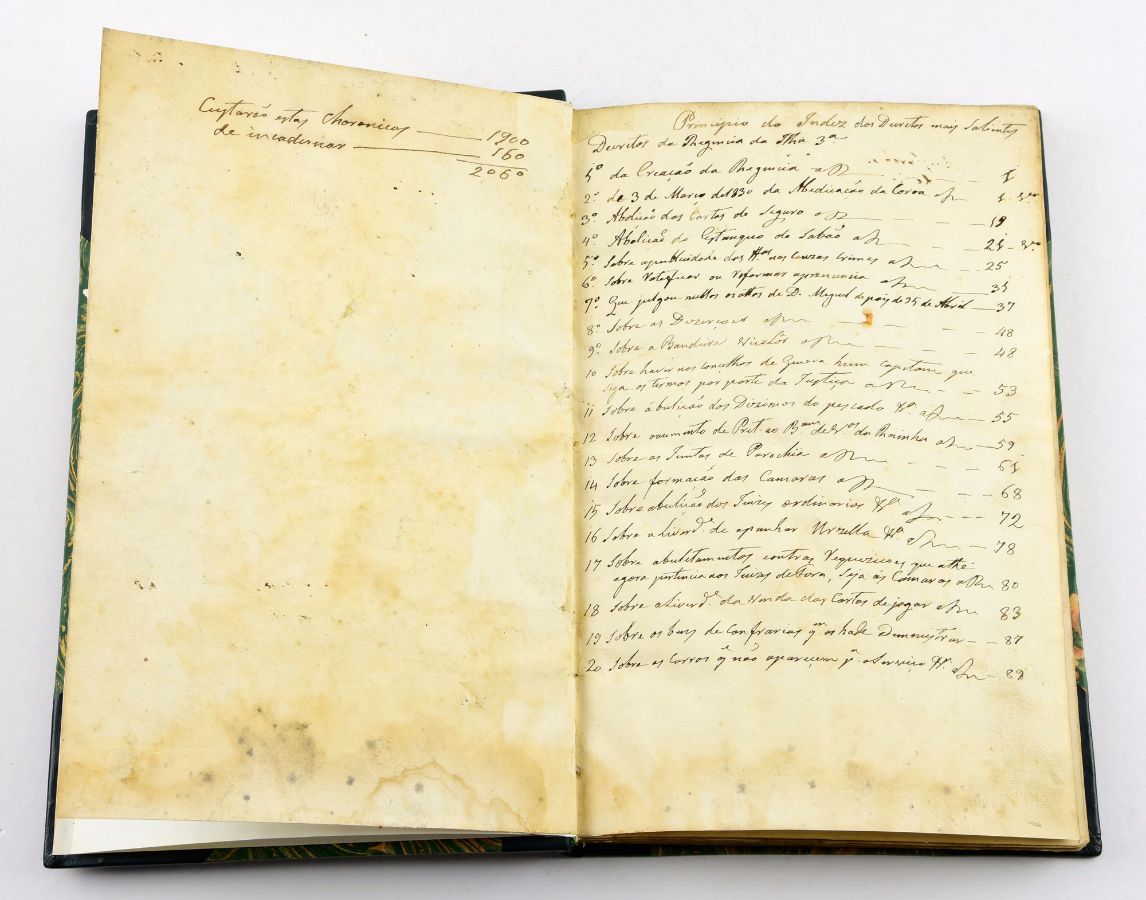 Custarão estas Choronicas — 1900
de incadernar — 160
2060
Principio do Indez dos Decretos mais Salientes
Decretos da Regencia da Ilha 3ª
1º da Creação da Regencia — 1
2º de 3 de Março de 1830 da Abedicação da Coroa — 1
3º Abolicão das Cartas de Seguro — 19
4º Abolicão do Estanque do Sabão — 21 - Vº
5º Sobre apublicidade dos nas Cauzas Crimes — 25
6º Sobre Ratefficar ou Refformar apronuncia — 35
7º Que julgou nullos os attos de D. Miguel depois de 25 de Abril — 37
8º Sobre as Dezerçoes — 48
9º Sobre a Bandeira — 48
10 Sobre haver nos concelhos de Guerra hum capitam que
siga os termos por parte da Justiça — 53
11 Sobre abulicão dos Dizimos do pescado — 55
12 Sobre aumento de Pret ao de da Rainha — 59
13 Sobre as Juntas de Parochia — 61
14 Sobre formacão das Camaras — 68
15 Sobre abulicão dos Juizes ordinarios — 72
16 Sobre aLiverdᵉ de apanhar Urzella — 78
17 Sobre contras que athe
agora pertencia aos Juizes de Fora, seja as Camaras — 80
18 Sobre aLiverdᵉ da venda das Cartas de jogar — 83
19 Sobre os bens de Confrarias qᵐ os hade Deministrar — 87
20 Sobre os Carros q̃ não apareçem pª oServiço — 89